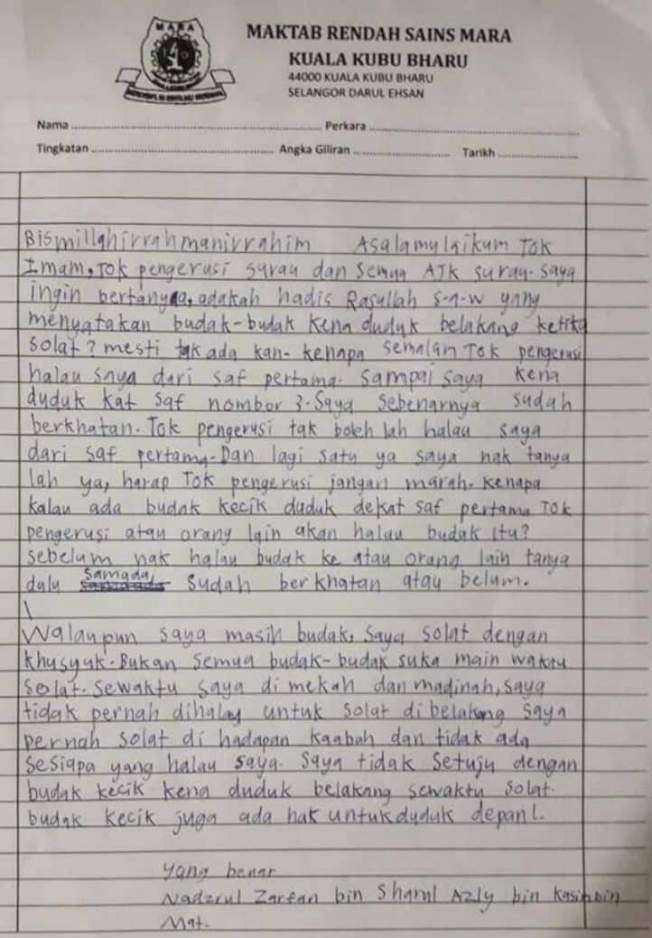 MARA
MAKTAB RENDAH SAINS MARA
KUALA KUBU BHARU
44000 KUALA KUBU BHARU
SELANGOR DARUL EHSAN
Nama Perkara
Tingkatan Angka Giliran Tarikh
Bismillahirrahmanirrahim Asalamulaikum Tok
Imam, Tok pengerusi surau dan semua AJK surau. saya
ingin bertanya, adakah hadis Rasullah s-a-w yang
menyatakan budak-budak kena duduk belakang ketika
solat? mesti tak ada kan. kenapa semalam Tok pengerusi
halau saya dari saf pertama. sampai saya kena
duduk kat saf nombor 3. Saya sebenarnya sudah
berkhatan. Tok pengerusi tak boleh lah halau saya
dari saf pertama. Dan lagi satu ya saya nak tanya
lah ya, harap Tok pengerusi jangan marah. kenapa
kalau ada budak kecik duduk dekat saf pertama Tok
pengerusi atau orang lain akan halau budak itu?
sebelum nak halau budak ke atau orang lain tanya
dulu samada sudah berkhatan atau belum.
Walaupun saya masih budak, saya solat dengan
khusyuk. Bukan semua budak-budak suka main waktu
solat. sewaktu saya di mekah dan madinah, saya
tidak pernah dihalau untuk solat di belakang saya
pernah solat di hadapan kaabah dan tidak ada
sesiapa yang halau saya. saya tidak setuju dengan
budak kecik kena duduk belakang sewaktu solat.
budak kecik juga ada hak untuk duduk depan!.
yang benar
Nadzrul Zarfan bin Shamul Azly bin Kasim bin
Mat.